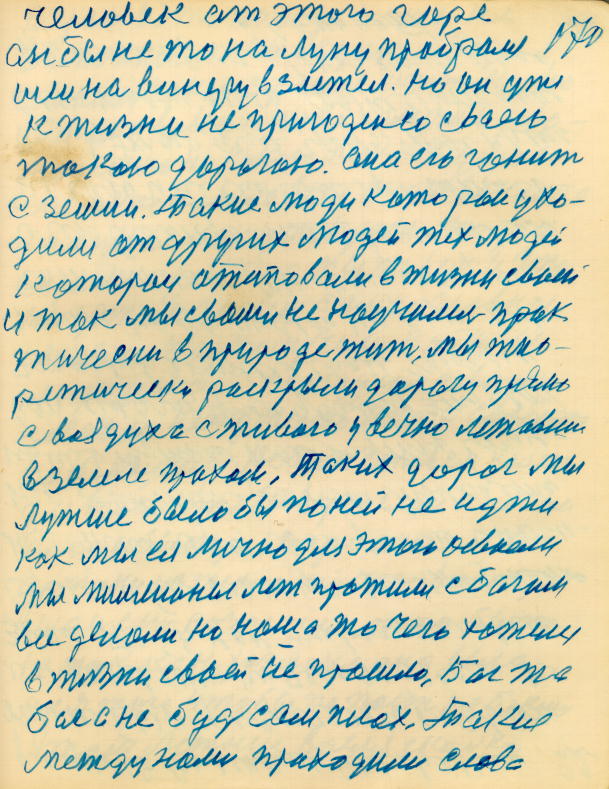 человек от этого горе
он был не то на луну пробрался 170
или на винеру взлетел. Но он уже
к жизни не пригоден со своею
такою дорогою. Она его гонит
с земли. Такие люди которои ухо-
дили от других людей тех людей
которои отступовали в жизни своей
и так мы своим не научимся прак
тически в природе жит, мы тио-
ретически раскрыли дорогу прямо
с воздуха с живого у вечно лежавшии
в земле прахом, Таких дорог мы
лучше было бы по ней не идти
как мы ея лично для этого освоели
мы миллионы лет прожили с богом
все делали но наша то чего хотели
в жизни своей не прошло, Бог то
бог а не будь сам плох. Такие
между нами проходили слова